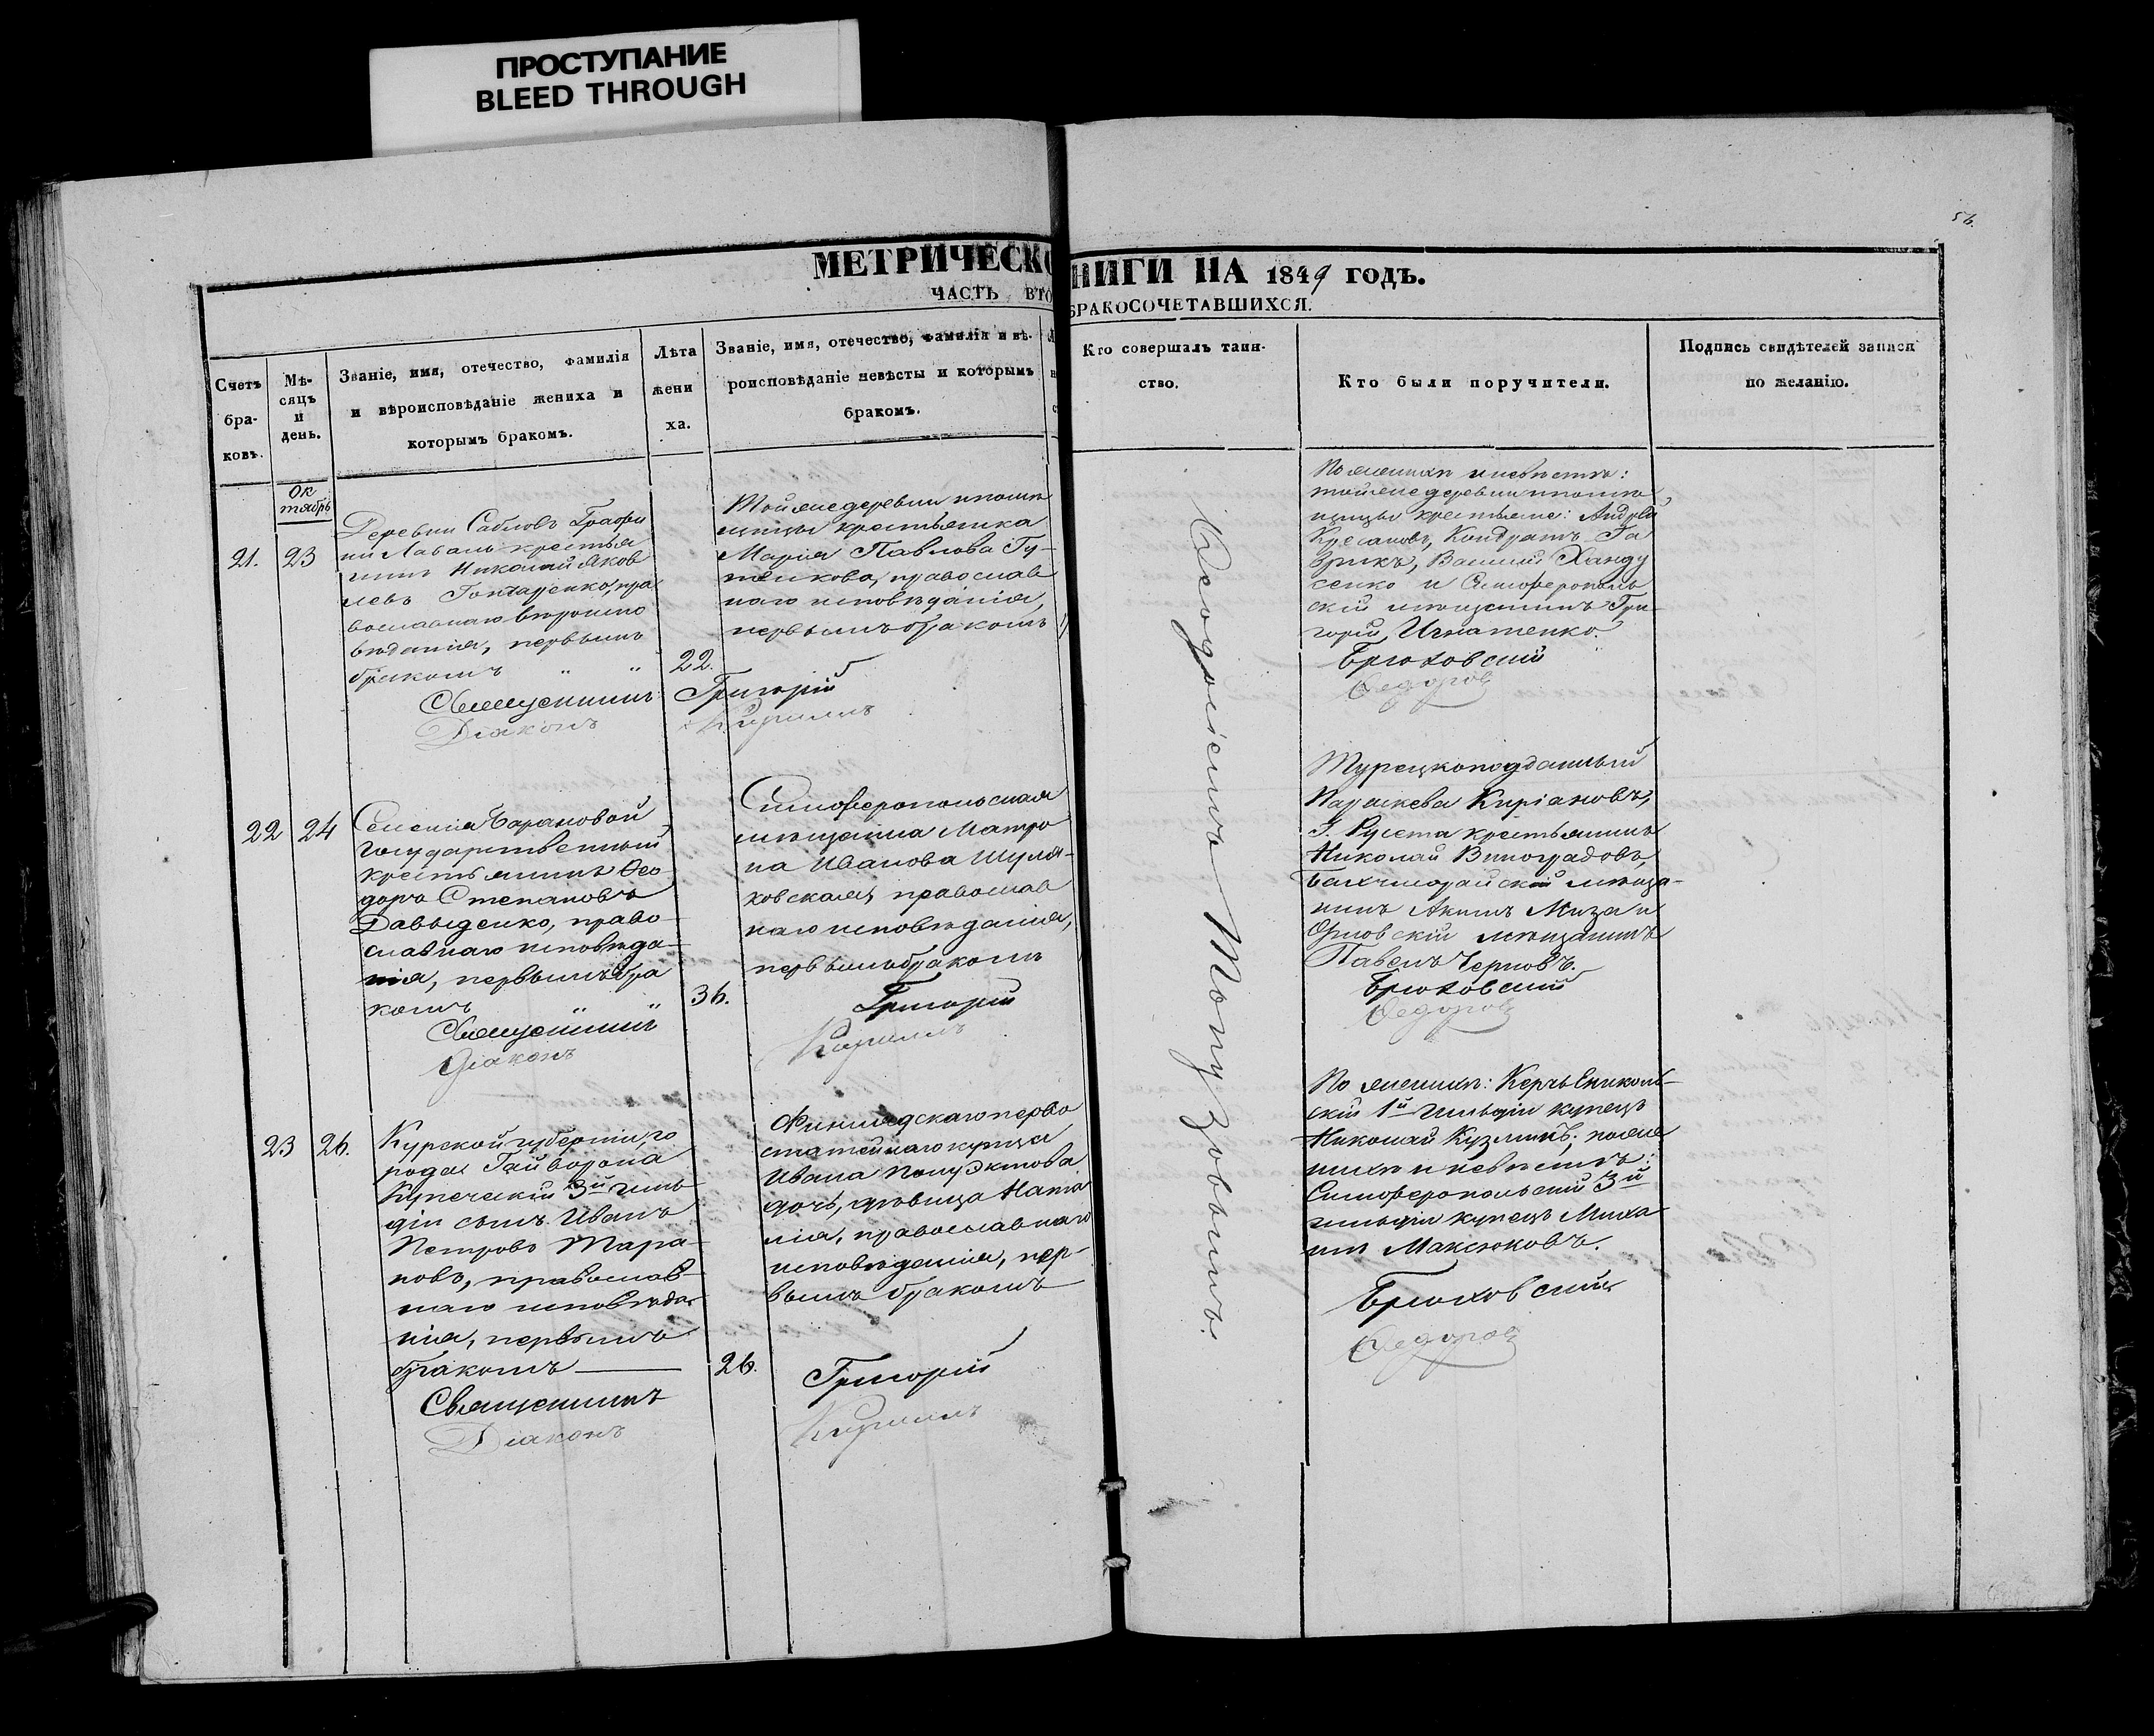 ПРОСТУПАНИЕ
BLEED THROUGH
56.
МЕТРИЧЕСКО
НИГИ НА 1849 ГОДЪ.
ЧАСТЬ ВТО
БРАКОСОЧЕТАВШИХСЯ.
Счетъ
бра-
ковъ.
Мѣ-
сяцъ
и
день.
Званіе, имя, отечество, фамилія
и вѣроисповѣданіе жениха и
которымъ бракомъ.
Лѣта
жени
ха.
Званіе, имя, отечество, фамилія и вѣ-
роисповѣданіе невѣсты и которымъ
бракомъ.
Кто совершалъ таин-
ство.
Кто были поручители.
Подпись свидѣтелей записи
по желанію.
Ок
тябрь
21. 23
Деревни Сабловъ Графи
ни Лаваль крестья
нинъ Николай Яков
левъ Гончаренко, пра
вославнаго вѣроиспо
вѣданія, первымъ
бракомъ " "
22.
Священникъ Григорій
Діаконъ Кирилъ
Тойже деревни помѣ
щицы крестьянка
Марія Павлова Гу-
жикова, православ
наго исповѣданія,
первымъ бракомъ
По женихѣ и невѣстѣ:
тойже деревни помѣ
щицы крестьяне: Андрей
Кресановъ, Кондратъ Га
врикъ, Василій Ханду
сенко и Симферополь
скій мѣщанинъ Гри
горій Игнатенко.
Брюховскій
Федоровъ
22 24
Селенія Барановой
государственный
крестьянинъ Ѳео
доръ Степановъ
Давыденко, право
славнаго исповѣда-
нія, первымъ бра
комъ " "
36.
Священникъ Григорій
Діаконъ Кирилъ
Симферопольская
мѣщанка Матро
на Иванова Шуля-
ковская, православ
наго исповѣданія,
первымъ бракомъ
Турецкоподданный
Параскева Киріаковъ,
Г. Руссета крестьянинъ
Николай Виноградовъ,
Бахчисарайскій мѣща-
нинъ Акимъ Миза и
Орловскій мѣщанинъ
Павелъ Черновъ.
Брюховскій
Федоровъ
23 26.
Курской губерніи, го
рода Гайворона
Купеческій 3й гиль
діи сынъ Иванъ
Петровъ Тара-
новъ, православ-
наго исповѣда
нія, первымъ
бракомъ
26.
Священникъ Григорій
Діаконъ Кирилъ
Финляндскаго перво
статейнаго купца
Ивана Полуэктова
дочь, дѣвица Ната
лія, православнаго
исповѣданія, пер-
вымъ бракомъ
По женихѣ: Керчь Еникольс-
скій 1й гильдіи купецъ
Николай Кузминъ; по же
нихѣ и невѣстѣ:
Симферопольскій 3й
гильдіи купецъ Миха
илъ Максюковъ.
Брюховскій
Федоровъ